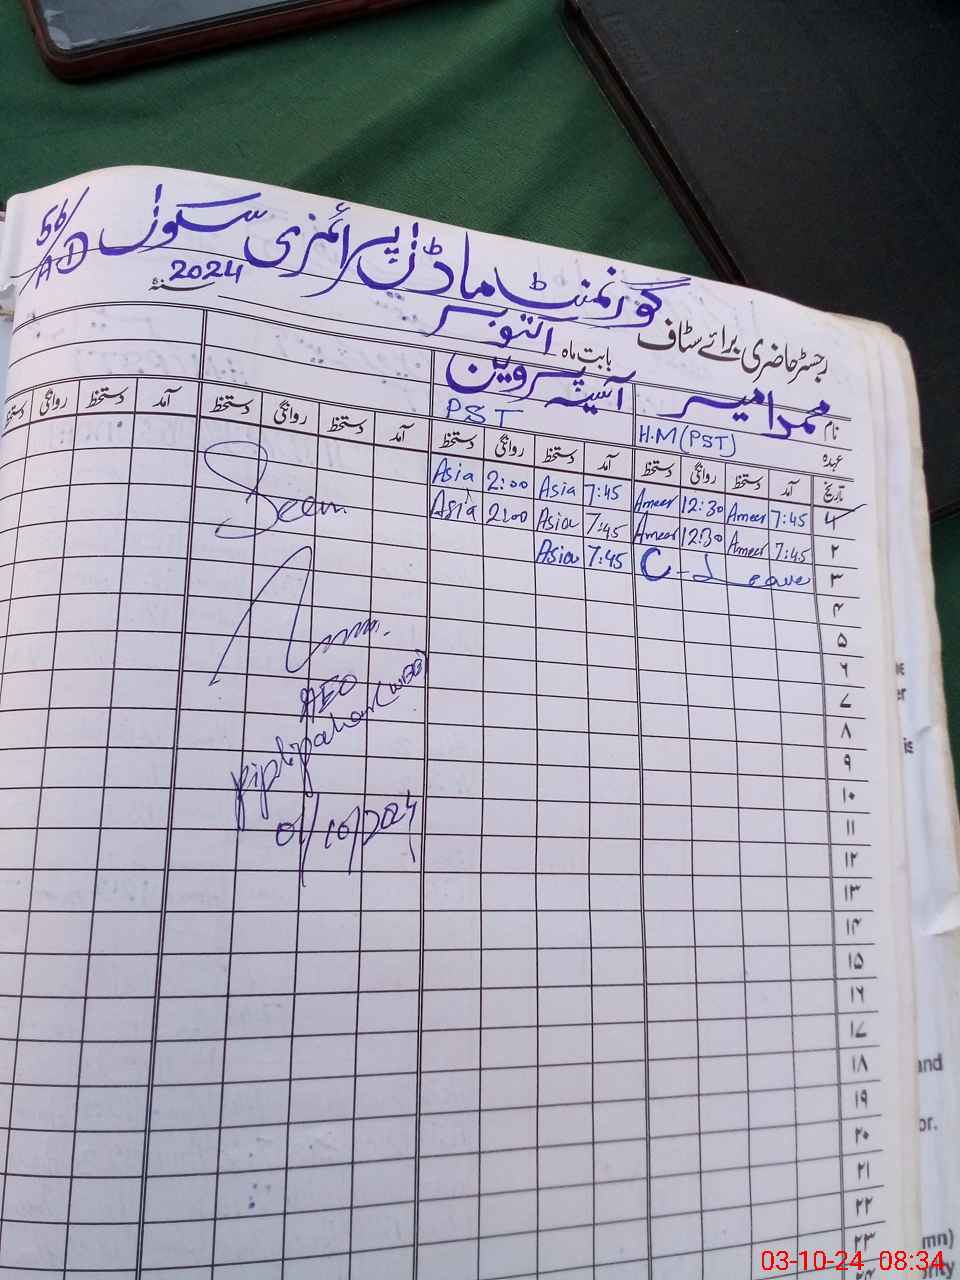 گورنمنٹ ماڈل پرائمری سکول 56/AD
رجسٹر حاضری برائے سٹاف
بابت ماہ اکتوبر 2024 سنہ
نام محمد امیر آسیہ پروین
عہدہ H.M (PST) PST
تاریخ آمد دستخط روانگی دستخط آمد دستخط روانگی دستخط آمد دستخط روانگی دستخط آمد دستخط روانگی دستخط
۱ 7:45 Ameer 12:30 Ameer 7:45 Asia 2:00 Asia
۲ 7:45 Ameer 12:30 Ameer 7:45 Asia 2:00 Asia
۳ C-Leave 7:45 Asia
۴
۵
۶
۷
۸
۹
۱۰
۱۱
۱۲
۱۳
۱۴
۱۵
۱۶
۱۷
۱۸
۱۹
۲۰
۲۱
۲۲
۲۳
۲۴
Seen
AEO
Piplipahar
01/10/2024
and
or.
mn)
03-10-24 08:34